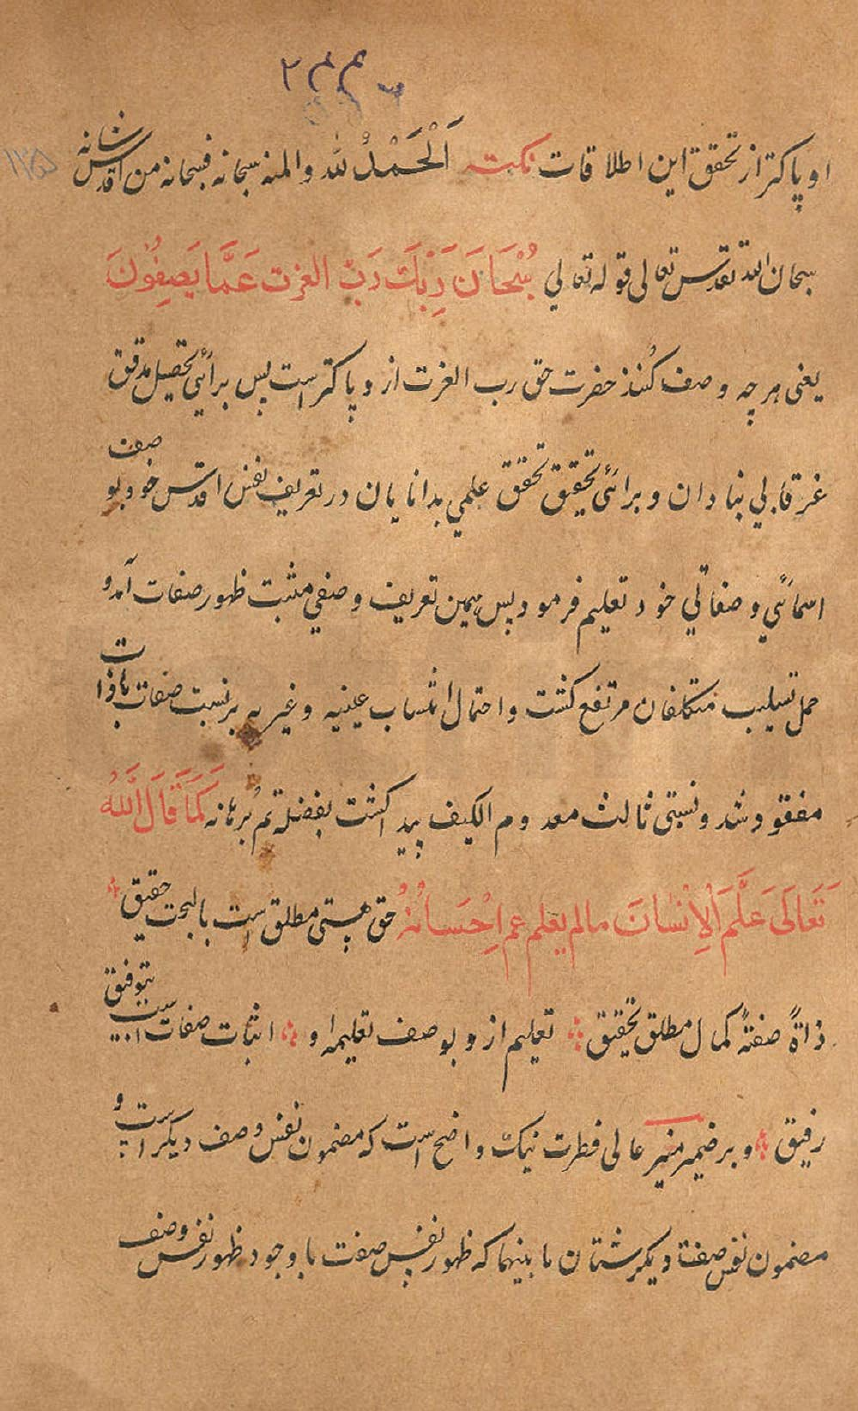 او پاکتر از تحقق این اطلاقات نکته الْحَمْدُ لله والمنه سبحانه فسبحانه من اقدس شانه
سبحان الله تقدس تعالی قوله تعالی سُبْحَانَ رَبِّكَ رَبِّ العزت عَمَّا يَصِفُونَ
یعنی هر چه وصف کنند حضرت حق رب العزت از و پاکتر است پس برائی تحصیل مدقق
غرقابی بنادان و برائی تحقیق تحقق علمی بدانایان در تعریف نفس اقدس خود بوصف
اسمائی و صفاتی خود تعلیم فرمود پس همین تعریف وصفی مثبت ظهور صفات آمد و
حمل تسلیب متکلفان مرتفع کشت و احتمال انتساب عینیه و غیریه بر نسبت صفات باذات
مفقود شد و نسبتی ثالث معدوم الکیف پیدا کشت بفضله تم برهانه كَمَا قَالَ اللهُ
تَعَالَى عَلَّمَ الْاِنْسَانَ مالم يعلم عم اِحْسَانُهُ حق هستی مطلق است بالبحت حقیق
ذاةً صفتهٔ کمال مطلق تحقیق تعلیم از و بوصف تعلیمه او اثبات صفات است بتوفیق
رفیق و بر ضمیر منیر عالی فطرت نیک واضح است که مضمون نفس وصف دیکر است و
مضمون نفس صفت دیکر شتان ما بینهما که ظهور نفس صفت با وجود ظهور نفس وصف